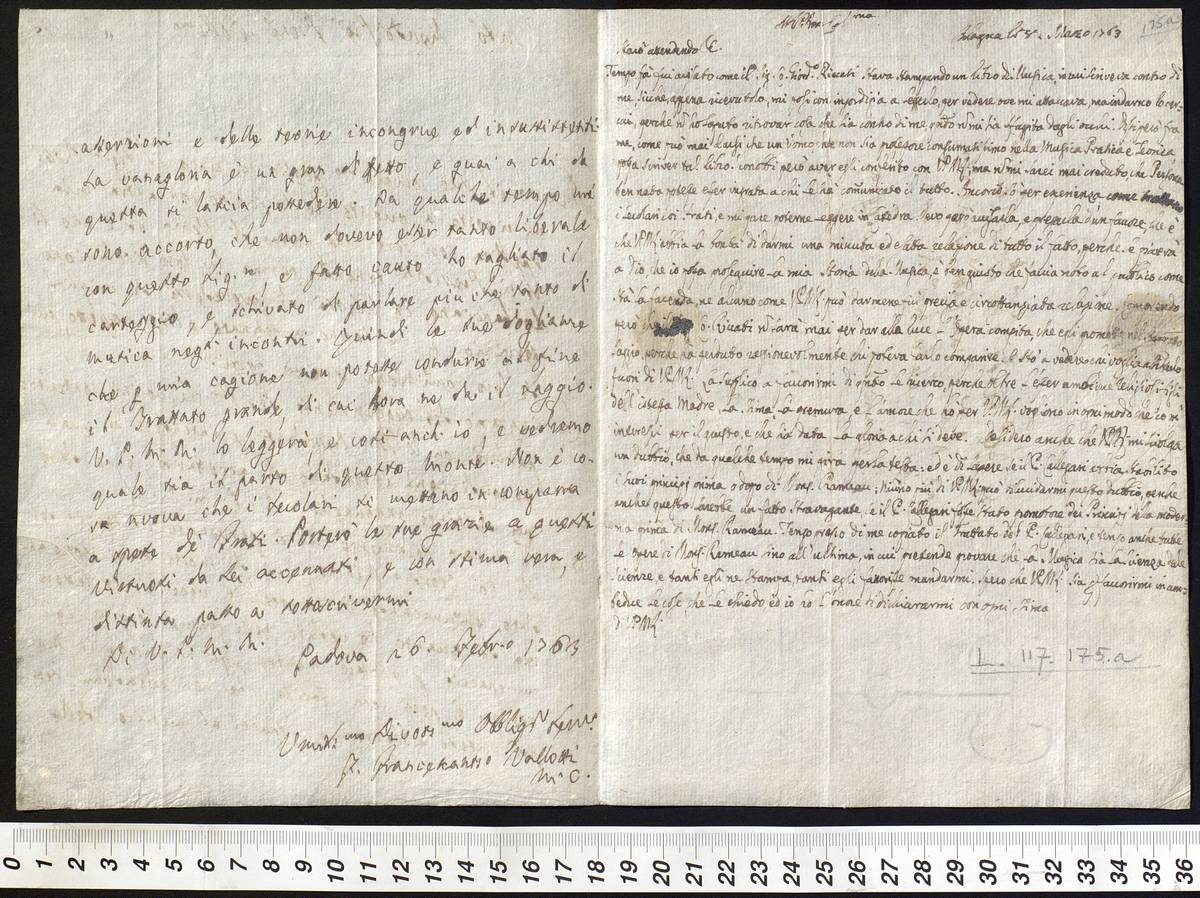 asserzioni e delle teorie incongrue ed insussistenti.
La vanagloria è un gran difetto, e guai a chi da
questa si lascia possedere. Da qualche tempo mi
sono accorto, che non dovevo esser tanto liberale
con questo Sig.r, e fatto cauto ho tagliato il
carteggio, e schivato di parlare più che tanto di
musica negli incontri. Quindi le due
che è una cagione non potesse condurre al fine
il Trattato grande di cui hora ne dà il saggio.
V. P. M. R. lo leggerà, e così anch'io, e vedremo
quale sia il parto di questo monte. Non è co-
sa nuova che i secolari si mettano in comparsa
a spese de' Frati. Porterò le sue grazie a questi
Virtuosi da Lei accennati, e con stima vera, e
distinta passo a sottoscrivermi
Di V. P. M. R.
Padova 26. Febr.o 1763
Umil.mo Divotis.mo Obblig.mo Serv.e
F. Francescantо Vallotti
M. C.
175a
Bologna li 8. Marzo 1763
Starò attendendo &.
Tempo fà fui avisato come il Sig. Co. Giord.o Riccati stava stampando un libro di Musica, in cui inveiva contro di
me, sicche, appena ricevutolo, mi posi con ingordigia a leggerlo, per vedere ove mi attaccava, ma indarno lo cer-
cai, perche nõ hò saputo ritrovar cosa che sia contro di me, quãdo nõ mi sia fuggita dagli occhi. Dissi però frà
me, come può mai darsi che un Uomo, che non sia Professore consumatissimo nella Musica Pratica e Teorica
possa scriver tal libro? conobbi però aver egli conferito con V.P.M.R. ma nõ mi avrei mai creduto, che Persona
ben nata potesse esser ingrata a chi le ha comunicato il tutto. Ancor io sò per esperienza come trattano
i Secolari coi Frati, e mi pare poterne essere in Catedra. Devo però avisarla, e pregarla d'un favore, ciò è
che V.P.M.R. abbia la bontà di darmi una minuta ed esatta relazione di tutto il fatto, perche, se piacerà
a Dio, che io possa proseguire la mia Storia della Musica, è ben giusto che faccia noto al publico come
stà la facenda, ne alcuno come V.P.M.R. può darmene più precisa e circostanziata relazione.
però che il Co. Riccati nõ sarà mai per dar alla luce l'Opera compita, che egli promette nel
saggio, perche ha perduto ragionevolmente chi poteva farlo comparire. e
fuori di V.P.M.R. La supplico a favorirmi di quãto le ricerco, perche oltre l'esser amedue Religiosi Figli
dell'istessa Madre, la stima, la premura, e l'amore che hò per V.P.M.R. vogliono in ogni modo che io m'
interessi per il giusto, e che sia data la gloria a chi si deve. Desidero anche che V.P.M.R. mi sciolga
un dubbio, che da qualche tempo mi gira per la testa: ed è di sapere se il P. Callegari abbia stabilito
i suoi principj prima o dopo di Mons. Rameau; niuno più di V.P.M.R. può dilucidarmi questo dubbio, perche
anche questo sarebbe un fatto stravagante, se il P. Callegari fosse stato promotore dei Principj della moder-
na prima di Mons. Rameau. Tempo presso di me copiato il Trattato del P. Callegari, e tengo anche tutte
le opere di Mons. Rameau sino all'ultima, in cui pretende provare che la Musica sia la scienza delle
Scienze, e tanti egli ne stampa, tanti egli favorisce mandarmi. Spero che V.P.M.R. sia p favorirmi in am-
bedue le cose che le chiedo ed io hò l'onore di dichiararmi con ogni stima
di V.P.M.R.
L. 117. 175.a
0 1 2 3 4 5 6 7 8 9 10 11 12 13 14 15 16 17 18 19 20 21 22 23 24 25 26 27 28 29 30 31 32 33 34 35 36